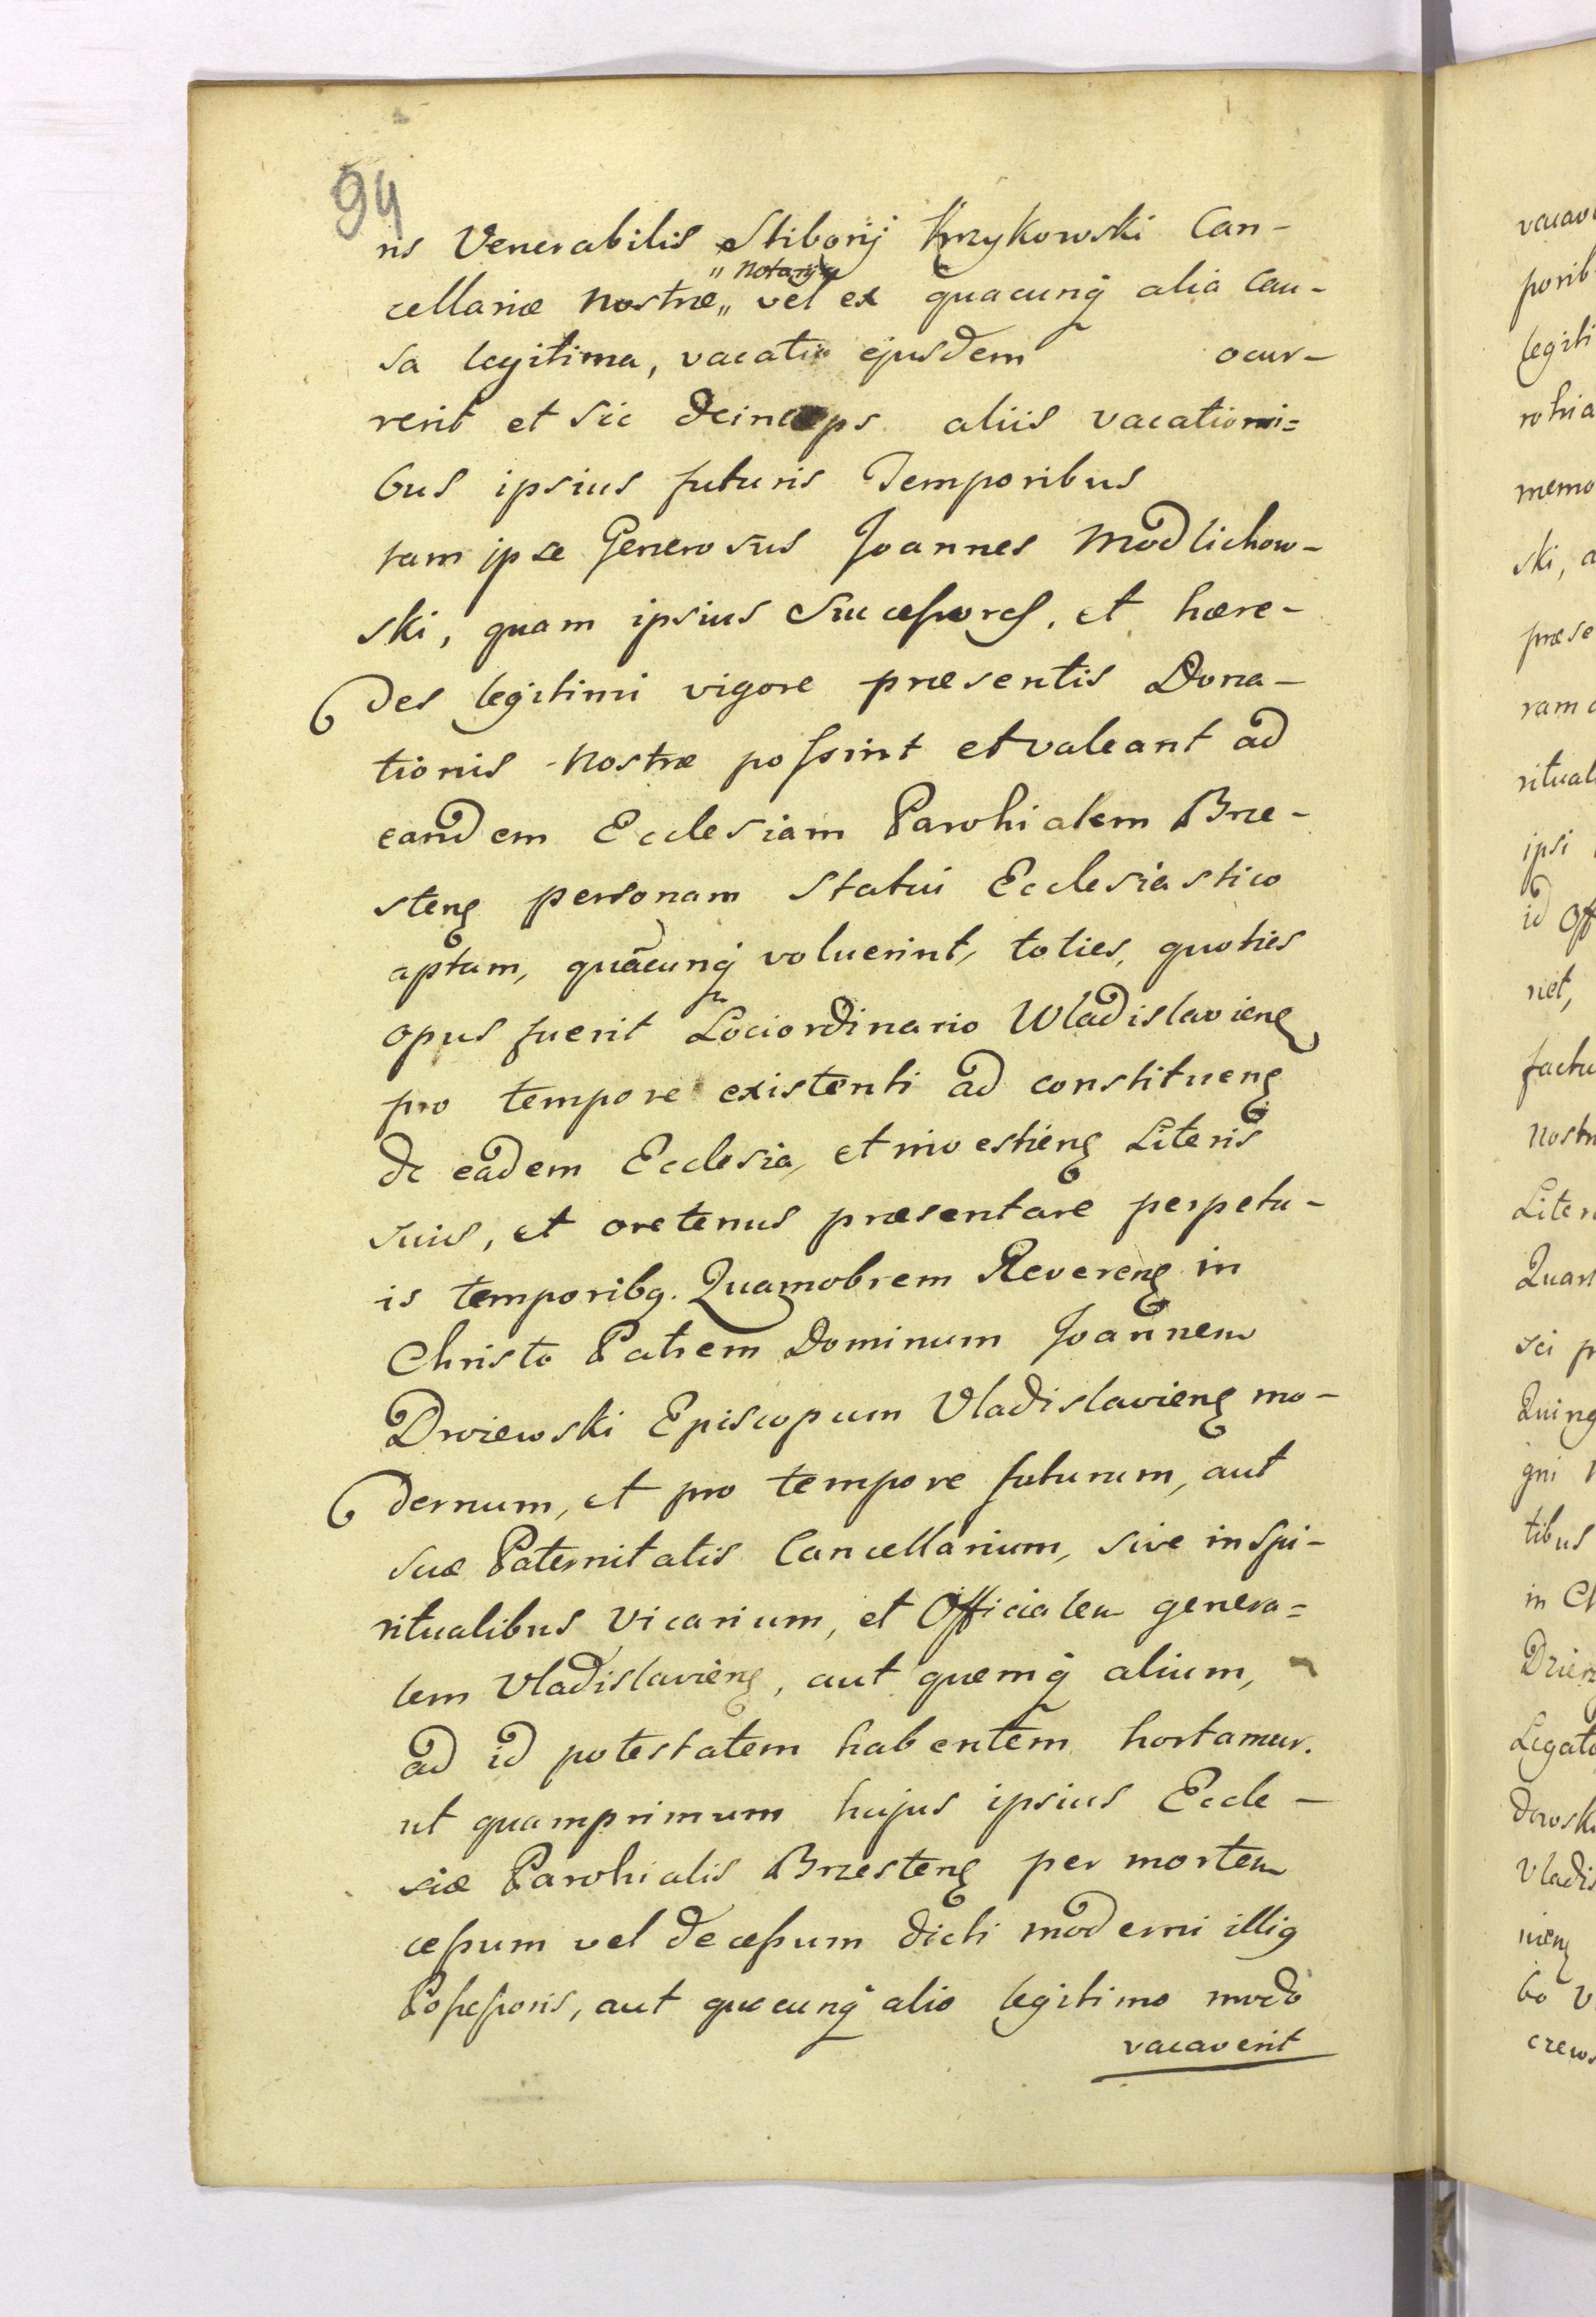 94
ris Venerabilis Stiborij Krzykowski Can-
„Notarij„
cellariæ Nostræ„ vel ex quacunq́ alia Cau-
sa legitima, vacatio ejusdem ocur-
rerit et sic deinceps aliis vacationi=
bus ipsius futuris Temporibus
tam ipse Generosus Joannes Modlichow-
ski, quam ipsius Sucessores, et hære-
des legitimi vigore præsentis Dona-
tionis Nostræ possint et valeant ad
eandem Ecclesiam Parohialem Brze-
steng personam statui Ecclesiastico
aptam, quacunq́ voluerint, toties, quoties
opus fuerit Lociordinario Wladislavieng
pro tempore existenti ad constitueng
de eadem Ecclesia, et investieng Literis
suis, et oretenus præsentare perpetu-
is temporibq. Quamobrem Revereng in
Christo Patrem Dominum Joannem
Drviewski Episcopum Vladislavieng mo-
dernum, et pro tempore futurum, aut
suæ Paternitatis Cancellarium, sive in Spi-
ritualibus Vicarium, et Officialem genera=
lem Vladislavieng, aut quemq́ alium,
ad id potestatem habentem hortamur.
ut quamprimum hujus ipsius Eccle-
siæ Parohialis Brzesteng per mortem
cessum vel decessum dicti moderni illig
Possessoris, aut quocunq́ alio legitimo modo
vacaverit
vacav
porib
legiti
rohia
memo
ski, a
præse
ram
ritual
ipsi
id Off
net,
factu
Nostr
Liter
Quam
sci p
Quing
gni
tibus
in Ch
Legato
dowsk
Vladis
bo v
crews